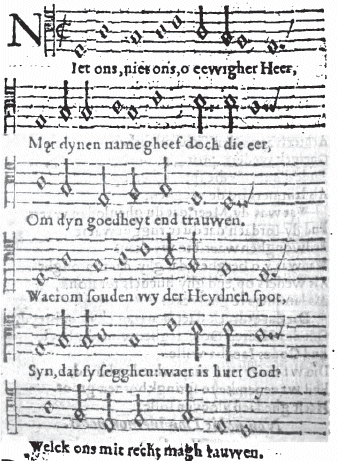 Niet ons, niet ons, o eewigher Heer,
Mer dynen name gheef doch die eer,
Om dyn goedheyt end trauwen.
Waerom souden wy der Heydnen spot,
Syn, dat sy segghen: waer is huer God?
Welck ons mit recht magh rauwen.